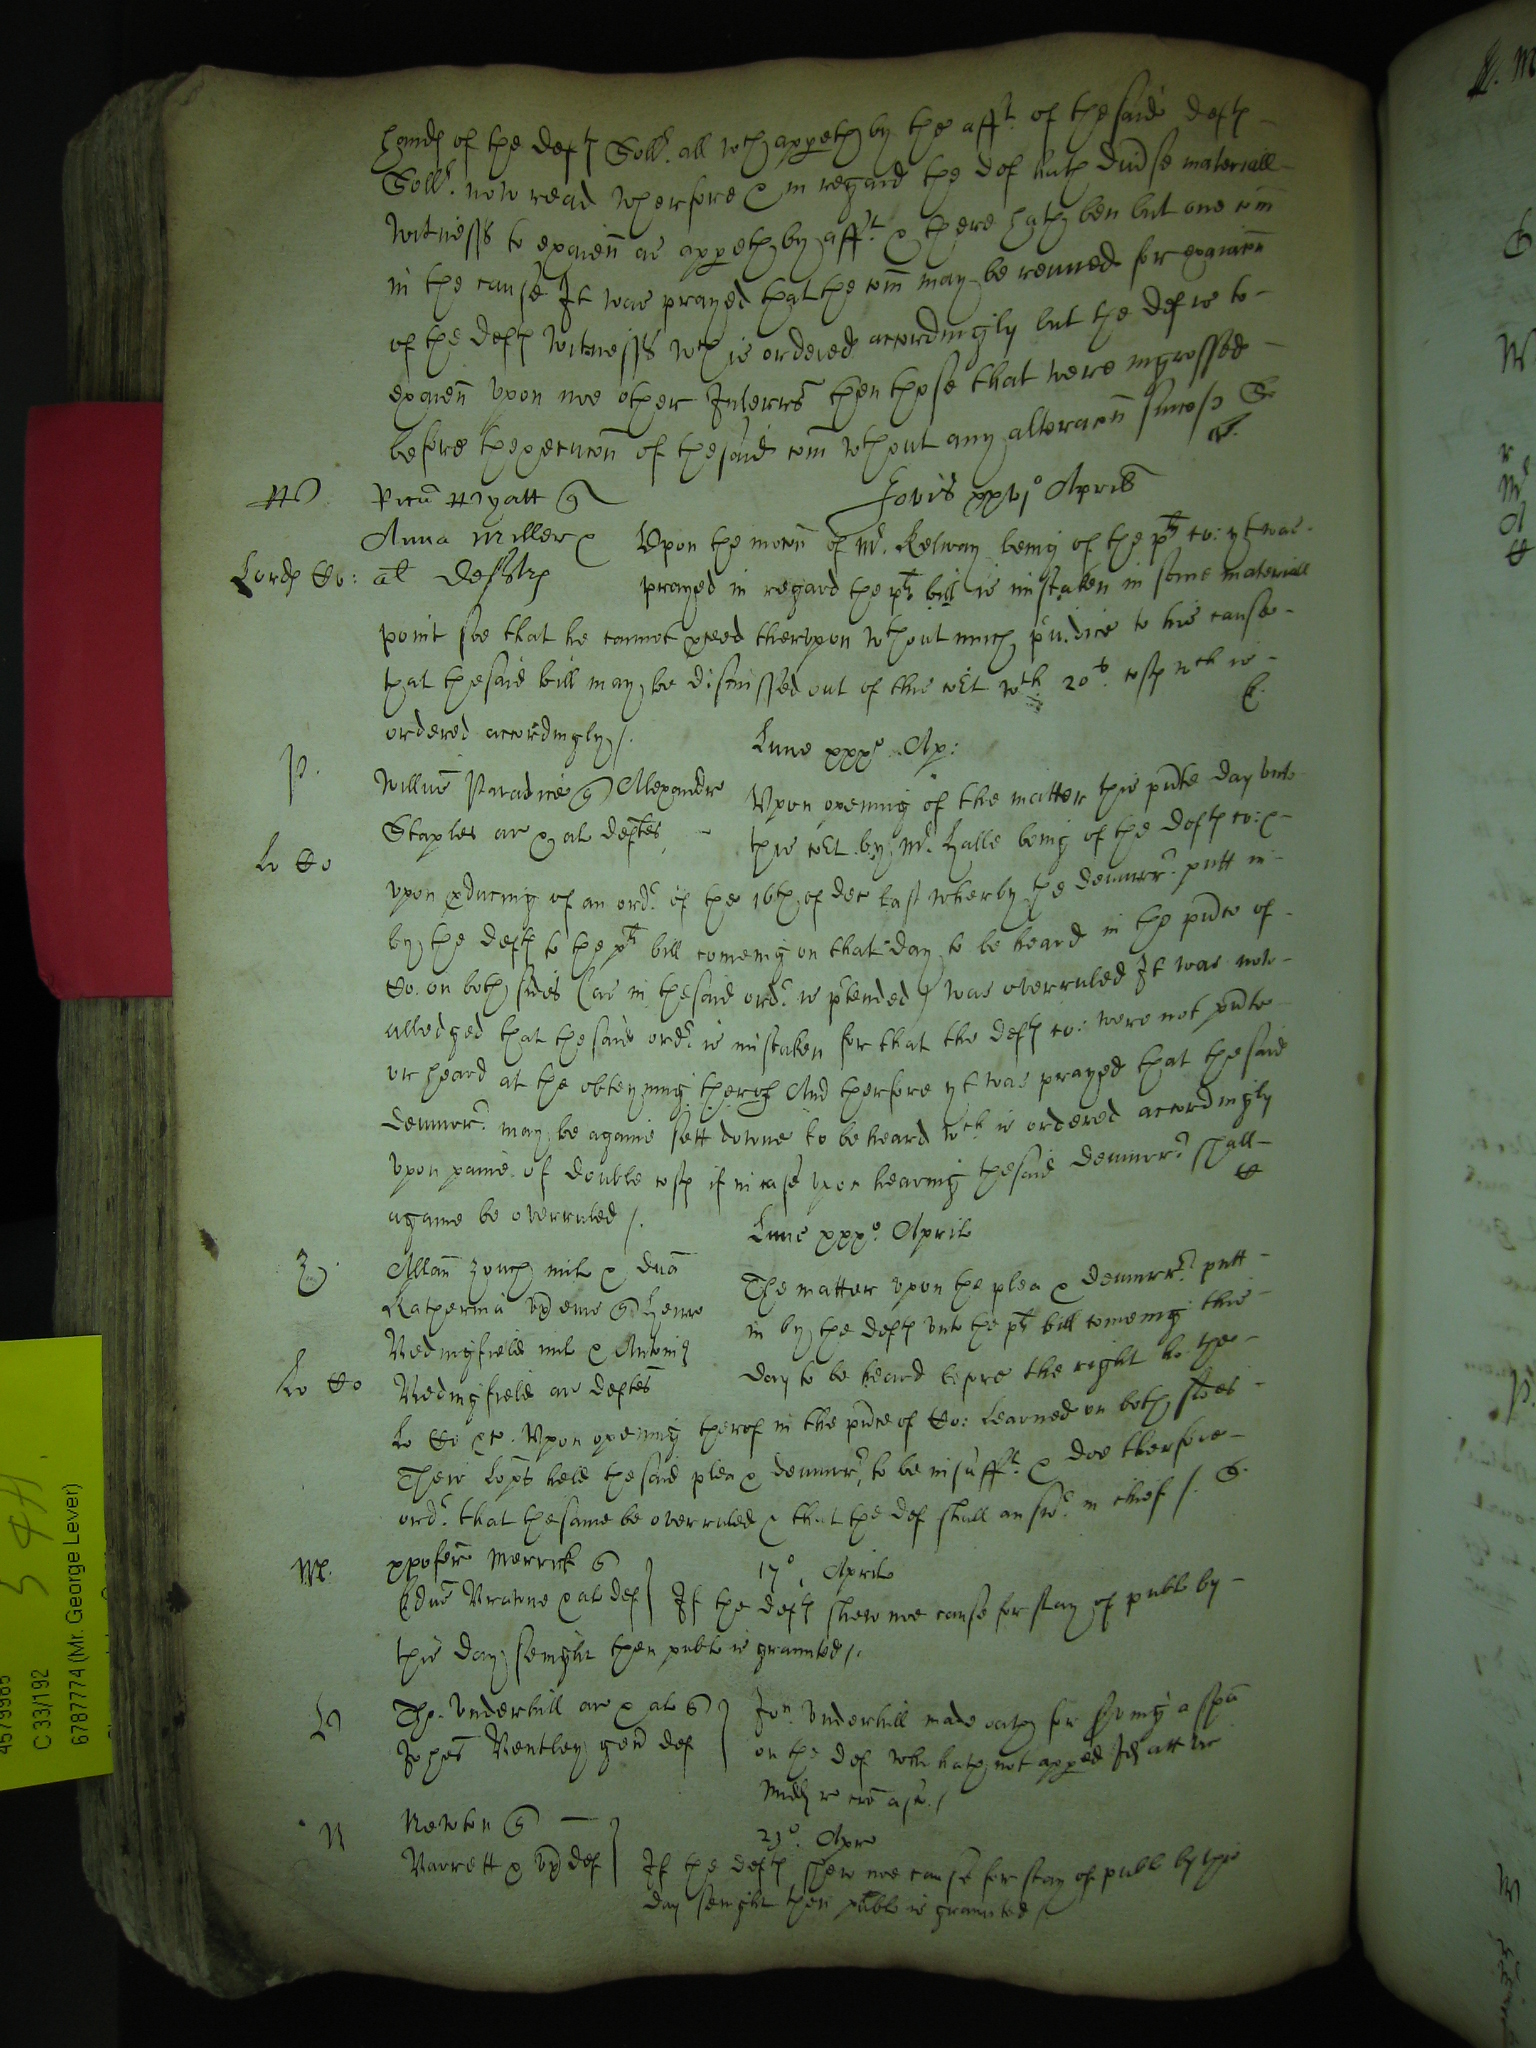 hands of the defts Sollr. all wch appeth by the afft. of the said defts
Sollr. now read Wherfore & in regard the def hath divse materiall
Witnesses to exaien as appeth by afft & there hath ben but one com
in the cause It was prayed that the com may be renued for exaiacon
of the defts Witnesses wch is ordered accordingly but the def is to
exaien upon noe other Interrs then those that were ingrossed
before thexecucon of the said com wthout any alteracon
Jovis xxvj° Aprilis
Anna Miller &
Lords Co: al defts
Upon the mocon of Mr. Kelway being of the plts co: yt was
prayed in regard the plts bill is mistaken in some materiall
point soe that he cannot pceed therupon wthout much pruidice to his cause
that the said bill may be dismissed out of this cort wth 20s. costs wch is
ordered accordingly /.
Lune xxx° Ap:
P.
Willus Paradice Alexandr
Staples ar & al deftes
Lo Co
Upon opening of the matter this pnte day unto
this cort by Mr. Halle being of the defts co: &
upon pducing of an ordr of the 16th of Dec last wherby the demurr. putt in
by the defts to the plts bill comeing on that day to be heard in the pnce of
Co. on both sides (as in the said ordr is ptended) was overruled It was now
alledged that the said ordr is mistaken for that the defts co: were not pnte
or heard at the obteyning therof And therfore yt was prayed that the said
demurr. may be againe sett downe to be heard wch is ordered accordingly
upon paine of double costs if in case upon hearing the said demurr shall
againe be overruled /.
Lune xxx° Aprilis
Z.
Allan Zouch mil & dna
Katherina ux eius Henr
Bedingfield mil & Antoni
Bedingfield ar deftes
Lo Co
The matter upon the plea & demurr. putt
in by the defts unto the plts bill comeing this
day to be heard before the right ho: the
Lo Co &c. Upon opening therof in the pnce of Co: learned on both sides
Their Lopps held the said plea & demurr to be insufft. & doe therfore
ordr. that the same be overruled & that the def shall answr. in chief /.
M.
xpofer Merrick
Edus Browne & al def
17° Aprilis
If the defts shew noe cause for stay of publ by
this day senight then publ is graunted /.
V
Tho. Underhill ar & al
Johes Bentley gen def
Jon. Underhill made oath for serving a spa
on the def who hath not apped Id att vic
Midd
N
Newton
Barrett & ux def
23° Apr
If the defts shew noe cause for stay of publ by this
day senight then publ is graunted /
C 33/192
6787774 (Mr. George Lever)